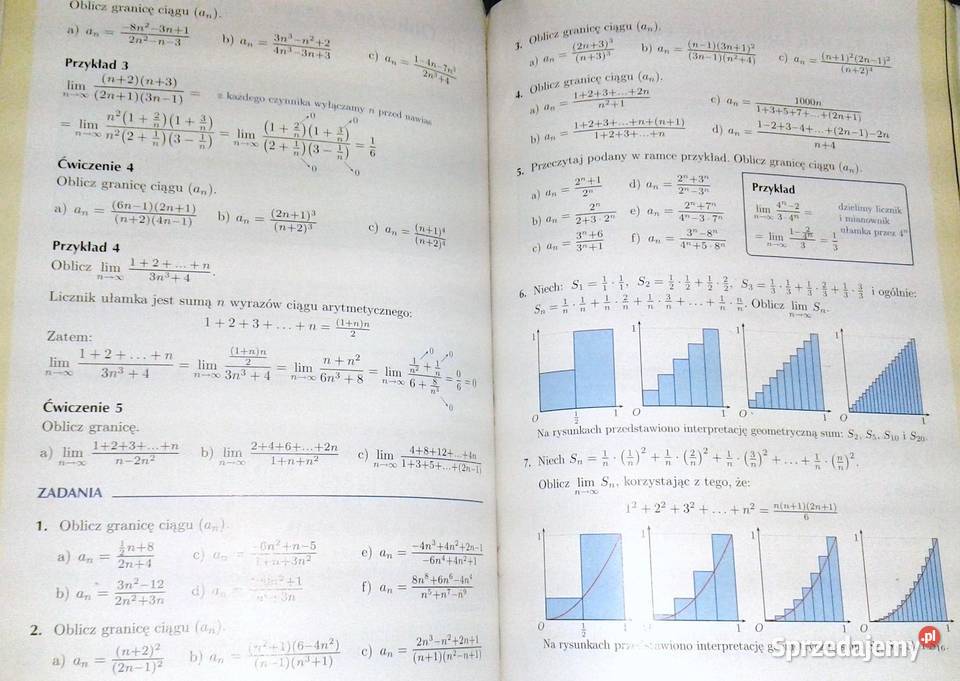 Oblicz granicę ciągu (aₙ).
a) aₙ = (−8n²−3n+1)/(2n²−n−3) b) aₙ = (3n³−n²+2)/(4n³−3n+3) c) aₙ = (1−4n−7n³)/(2n³+4)
Przykład 3
lim n→∞ (n+2)(n+3)/((2n+1)(3n−1)) = z każdego czynnika wyłączamy n przed nawias
= lim n→∞ n²(1 + 2/n)(1 + 3/n)/(n²(2 + 1/n)(3 − 1/n)) = lim n→∞ (1 + 2/n)(1 + 3/n)/((2 + 1/n)(3 − 1/n)) = 1/6
Ćwiczenie 4
Oblicz granicę ciągu (aₙ).
a) aₙ = (6n−1)(2n+1)/((n+2)(4n−1)) b) aₙ = (2n+1)³/(n+2)³ c) aₙ = (n+1)⁴/(n+2)⁴
Przykład 4
Oblicz lim n→∞ (1 + 2 + ... + n)/(3n³ + 4).
Licznik ułamka jest sumą n wyrazów ciągu arytmetycznego:
1 + 2 + 3 + ... + n = (1+n)n/2
Zatem:
lim n→∞ (1 + 2 + ... + n)/(3n³ + 4) = lim n→∞ ((1+n)n/2)/(3n³ + 4) = lim n→∞ (n + n²)/(6n³ + 8) = lim n→∞ (1/n² + 1/n)/(6 + 8/n³) = 0/6 = 0
Ćwiczenie 5
Oblicz granicę.
a) lim n→∞ (1+2+3+...+n)/(n−2n²) b) lim n→∞ (2+4+6+...+2n)/(1+n+n²) c) lim n→∞ (4+8+12+...+4n)/(1+3+5+...+(2n−1))
ZADANIA
1. Oblicz granicę ciągu (aₙ).
a) aₙ = (½n+8)/(2n+4) c) aₙ = (−6n²+n−5)/(1+n+3n²) e) aₙ = (−4n³+4n²+2n−1)/(−6n⁴+4n²+1)
b) aₙ = (3n²−12)/(2n²+3n) d) aₙ = f) aₙ = (8n⁸+6n⁶−4n⁴)/(n⁵+n⁷−n⁹)
2. Oblicz granicę ciągu (aₙ).
a) aₙ = (n+2)²/(2n−1)² b) aₙ = (n²+1)(6−4n²)/((n−1)(n³+1)) c) aₙ = (2n³−n²+2n+1)/((n+1)(n²−n+1))
3. Oblicz granicę ciągu (aₙ).
a) aₙ = (2n+3)³/(n+3)³ b) aₙ = (n−1)(3n+1)²/((3n−1)(n²+4)) c) aₙ = (n+1)²(2n−1)²/(n+2)⁴
4. Oblicz granicę ciągu (aₙ).
a) aₙ = (1+2+3+...+2n)/(n²+1) c) aₙ = 1000n/(1+3+5+7+...+(2n+1))
b) aₙ = (1+2+3+...+n+(n+1))/(1+2+3+...+n) d) aₙ = (1−2+3−4+...+(2n−1)−2n)/(n+4)
5. Przeczytaj podany w ramce przykład. Oblicz granicę ciągu (aₙ).
a) aₙ = (2ⁿ+1)/2ⁿ d) aₙ = (2ⁿ+3ⁿ)/(2ⁿ−3ⁿ)
b) aₙ = 2ⁿ/(2+3·2ⁿ) e) aₙ = (2ⁿ+7ⁿ)/(4ⁿ−3·7ⁿ)
c) aₙ = (3ⁿ+6)/(3ⁿ+1) f) aₙ = (3ⁿ−8ⁿ)/(4ⁿ+5·8ⁿ)
Przykład
lim n→∞ (4ⁿ−2)/(3·4ⁿ) = dzielimy licznik
i mianownik
= lim n→∞ (1−2/4ⁿ)/3 = 1/3 ułamka przez 4ⁿ
6. Niech: S₁ = 1/1 · 1/1, S₂ = 1/2 · 1/2 + 1/2 · 2/2, S₃ = 1/3 · 1/3 + 1/3 · 2/3 + 1/3 · 3/3 i ogólnie:
Sₙ = 1/n · 1/n + 1/n · 2/n + 1/n · 3/n + ... + 1/n · n/n. Oblicz lim n→∞ Sₙ.
1 1 1 1
O ½ 1 O 1 O 1 O 1
Na rysunkach przedstawiono interpretację geometryczną sum: S₂, S₅, S₁₀ i S₂₀.
7. Niech Sₙ = 1/n · (1/n)² + 1/n · (2/n)² + 1/n · (3/n)² + ... + 1/n · (n/n)².
Oblicz lim n→∞ Sₙ, korzystając z tego, że:
1² + 2² + 3² + ... + n² = n(n+1)(2n+1)/6
1 1 1 1
O ½ 1 O 1 O 1 O 1
Na rysunkach przedstawiono interpretację
Sprzedajemy.pl